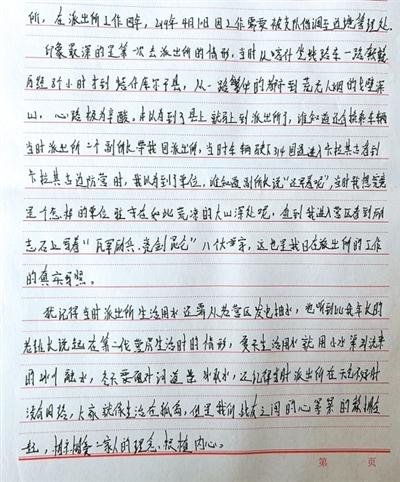 所，在派出所工作四年，2019年4月1日因工作需要被支队借调至边境管理处
印象最深的是第一次去派出所的情形，当时从喀什坐铁路车一路颠簸
历经8个小时才到塔什库尔干县，从一路繁华的都市到荒无人烟的戈壁深
山，心路极为辛酸。本以为到了县上就可上到派出所了，谁知道还有换乘车辆
当时派出所二个副所长带我回派出所，当时车辆 进入卡拉其古看到
卡拉其古边防营时，我以为到了单位，谁知道副所长说“还早着呢”，当时我想究竟
是个怎样的单位驻守在如此荒凉的大山深处呢，直到我进入营区看到励
志石上写着“瓦罕砺兵，亮剑昆仑”八个大字，这也是我日后在派出所的工作
的真实写照。
我记得当时派出所生活用水还要从老营区发电抽水，也听到比我年长的
老班长说起在第二代营房生活时的情形，夏天生活用水就用小水渠引流来
的冰川融水，冬天要砸开河道里冰取水，还记得当时派出所在天气不好时
没有网络，大家就像生活在孤岛，但是我们彼此之间的心紧紧的 在一
起，相亲相爱一家人的理念，根植内心。
第 页